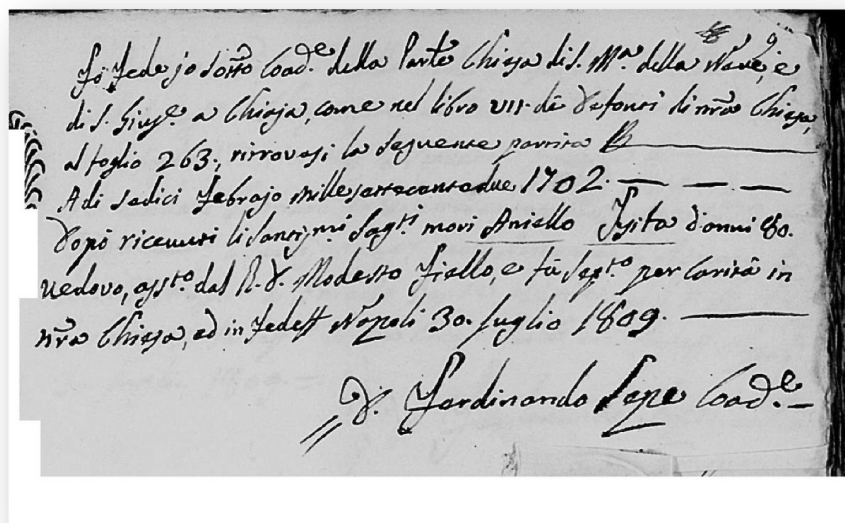 Fò fede io sotto Coad.e della Parr.le Chiesa di S. M.a della Neve, e
di S. Gius.e a Chiaja, come nel libro VII. di Defonti di nr̃a Chiesa,
al foglio 263., ritrovasi la seguente partita
A di sedici Febrajo millesettecentodue 1702.
Dopò ricevuti li Santiss.mi Sagr.ti morì Aniello d'anni 80.
vedovo, asst.o dal R. D. Modesto Fiello, e fù sep.to per carità in
nr̃a Chiesa, ed in fede Napoli 30. Luglio 1809.
D. Ferdinando Sepe Coad.e